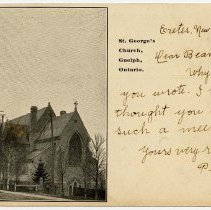 St. George's
Church,
Guelph,
Ontario.
Exeter, Nov
Dear Bea
Why
you wrote. I
thought you
such a mee
Yours very